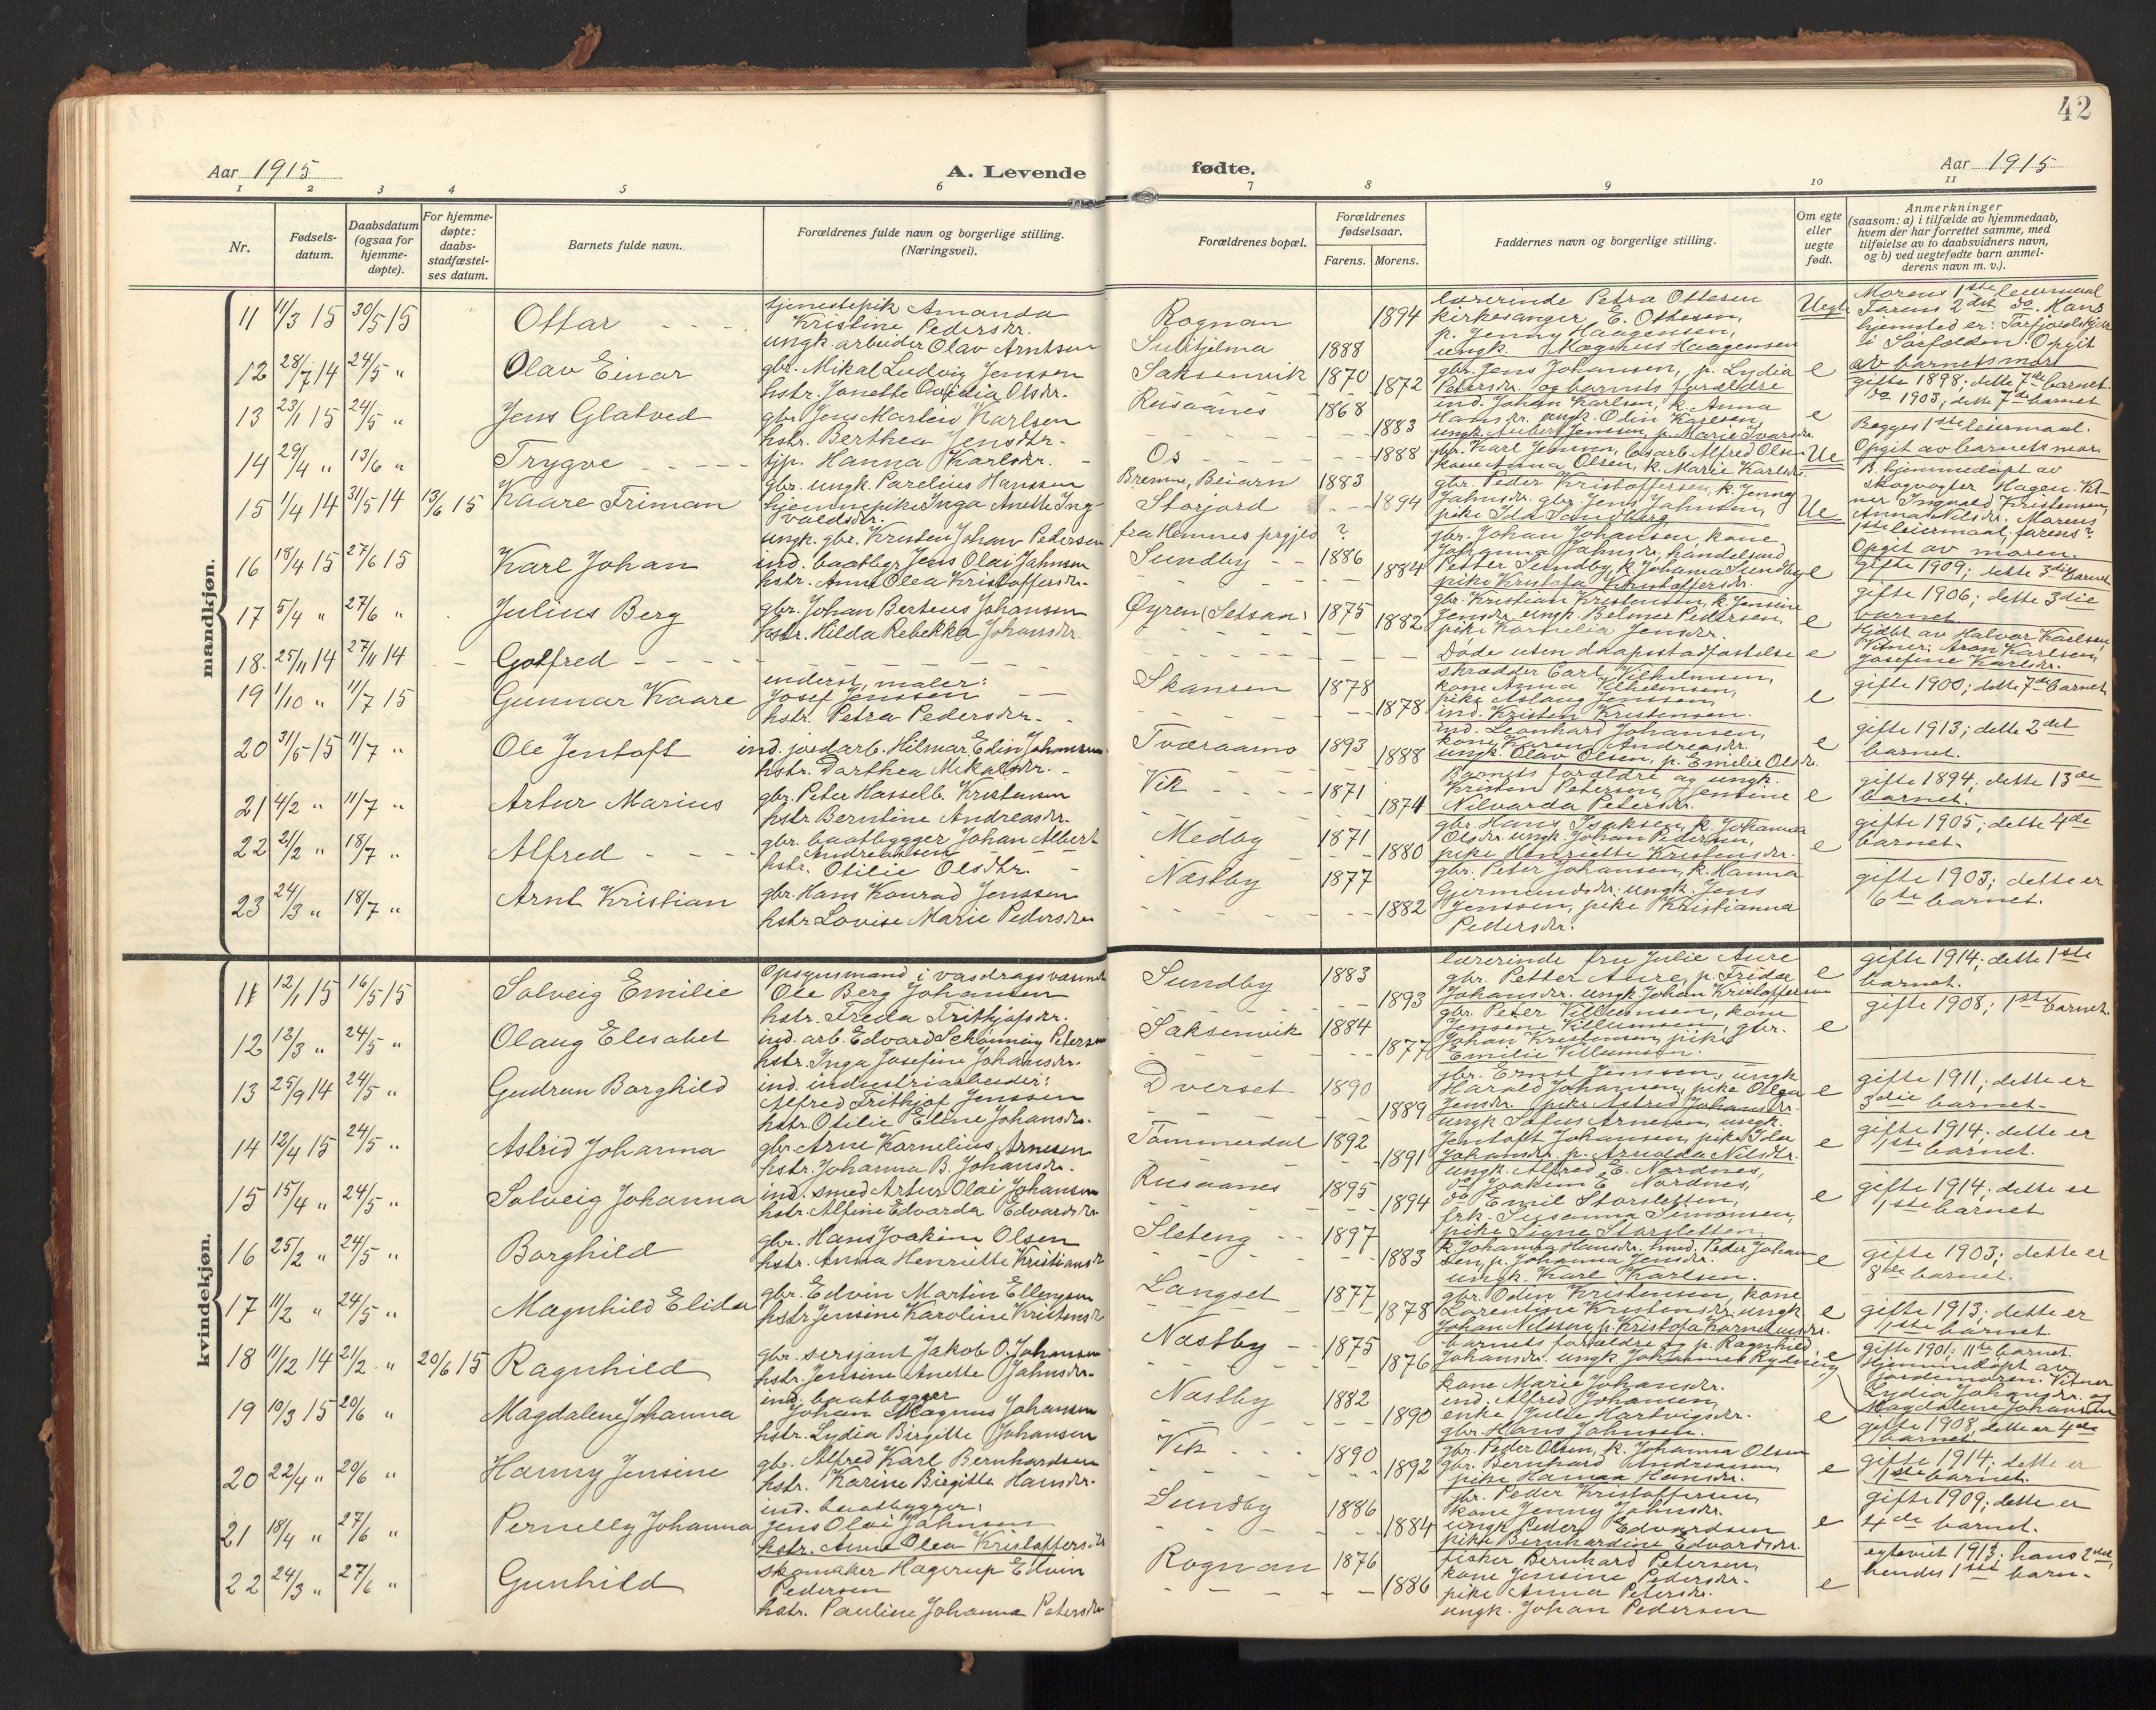 42
Aar 1915
A. Levende fødte.
Aar 1915
1 2 3 4 5 6 7 8 9 10 11
Nr.
Fødsels-
datum.
Daabsdatum
(ogsaa for
hjemme-
døpte).
For hjemme-
døpte:
daabs-
stadfæstel-
ses datum.
Barnets fulde navn.
Forældrenes fulde navn og borgerlige stilling.
(Næringsvei).
Forældrenes bopæl.
Forældrenes
fødselsaar.
Farens. Morens.
Faddernes navn og borgerlige stilling.
Om egte
eller
uegte
født.
Anmerkninger
(saasom: a) i tilfælde av hjemmedaab,
hvem der har forrettet samme, med
tilføielse av to daabsvidners navn,
og b) ved uegtefødte barn anmel-
derens navn m. v.).
mandkjøn.
11 11/3 15 30/5 15 Ottar
tjenestepik Amanda
Kristine Pedersdr.
ungk. arbeider Olav Arntsen
Rognan 1894
Sulitjelma 1888
lærerinde Petra Ottesen
kirkesanger E. Ottesen,
p. Jenny Haagensen,
ungk. Magnus Haagensen
Uegte
Morens 1ste leiermaal
Farens 2det do. Hans
hjemsted er: Torfjordskjær
i Sørfolden. Opgit
av barnets mor
12 28/7 14 24/5 " Olav Einar
gbr. Mikal Ludvig Jenssen
hstr. Jonette Ovidia Olsdr.
Saksenvik 1870 1872
gbr. Jens Johansen, p. Lydia
Petersdr. og barnets forældre
e
gifte 1898; dette 7de barnet.
13 23/1 15 24/5 " Jens Glatved
gbr. Jens Martin Karlsen
hstr. Berthea Jensdtr.
Rusaanes 1868 1883
ind. Johan Karlsen, k. Anna
Hansdr. ungk. Odin Karlsen,
ungk. Anbert Jenssen, p. Marie Ivarsdr.
e
do 1903; dette 7de barnet.
14 29/4 " 13/6 " Trygve
tjp. Hanna Karlsdr.
gbr. ungk. Parelius Hanssen
Os 1888
Bremne, Beiarn 1883
gbr. Karl Jensen, løsarb. Alfred Olsen
kone Anna Olsen, k. Marie Karlsdr.
Ue
Begges 1ste leiermaal.
Opgit av barnets mor
15 1/4 14 31/5 14 13/6 15 Kaare Friman
hjemmepike Inga Anette Ing-
valdsdr.
ungk. gbr. Kristen Johan Pedersen
Storjord 1894
fra Hemnes prgjed ?
gbr. Peder Kristoffersen, k. Jenny
Jahnsdr. gbr. Jens Jahnsen,
pike Ida Sandberg
Ue
B. hjemmedøpt av
skogvogter Hagen. Vit-
ner Ingvald Kristensen,
Anna Nilsdr. Morens
1ste leiermaal, farens?
Opgit av moren.
16 18/4 15 27/6 15 Karl Johan
ind. baatbgr Jens Olai Jahnsen
hstr. Anna Olea Kristoffersdr.
Sundby 1886 1884
gbr. Johan Johansen, kone
Johanna Jahnsdr, handelsmd
Petter Sundby, k. Johanna Sundby
pike Kristofa Kristoffersdr.
e
gifte 1909; dette 3die barnet
17 5/4 " 27/6 " Julius Berg
gbr. Johan Berteus Johansen
hstr. Hilda Rebekka Johansdr.
Øyren (Setsaa) 1875 1882
gbr. Kristian Kristensen, k. Jensine
Jensdr. ungk. Belmer Pedersen,
pike Kornelia Jensdr.
e
gifte 1906; dette 3die
barnet
18 25/11 14 27/11 14 Gotfred
Døde uten daapsstadfæstelse e
Hjdbt av Halvor Karlsen,
Vitner: Aron Karlsen,
Josefine Karlsdr.
19 1/10 " 11/7 15 Gunnar Kaare
inderst, maler:
Josef Jenssen
hstr. Petra Pedersdr.
Skansen 1878 1878
skrædder Carl Vilhelmsen,
kone Anna Vilhelmsen,
pike Aslaug Jonssen,
ind. Kristen Kristensen.
e
gifte 1900; dette 7de barnet
20 31/5 15 11/7 " Ole Jentoft
ind. jordarb. Hilmar Edin Johansen
hstr. Dorthea Mikalsdr.
Tværaamo 1893 1888
ind. Leonhard Johansen,
kone Karen Andreasdr.
ungk. Olav Olsen, p. Emilie Olsdr.
e
gifte 1913; dette 2det
barnet.
21 4/2 " 11/7 " Artur Marius
gbr. Peter Hasselb. Kristensen
hstr Berntine Andreasdr.
Vik 1871 1874
Barnets forældre og ungk.
Kristen Petersen, Jensine
Nilvarda Petersdr.
e
gifte 1894; dette 13de
barnet.
22 21/2 " 18/7 " Alfred
gbr. baatbygger Johan Albert
Andreassen
hstr. Otilie Olsdtr.
Medby 1871 1880
gbr. Hans Isaksen, k. Johanna
Olsdr. ungk. Johan Pedersen,
pike Henriette Kristensdr.
e
gifte 1905; dette 4de
barnet.
23 24/3 " 18/7 " Arnt Kristian
gbr. Hans Konrad Jenssen
hstr Lovise Marie Pedersdr
Næstby 1877 1882
gbr. Peter Johansen, k. Hanna
Gurmundsdr. ungk. Jens
Jenssen, pike Kristianna
Pedersdr.
gifte 1903; dette er
6te barnet.
kvindekjøn.
11 12/1 15 16/5 15 Solveig Emilie
Opsynsmand i vasdragsvæsnet
Ole Berg Johansen
hstr. Freda Fritjofsdr.
Sundby 1883 1893
lærerinde fru Julie Aure
gbr. Petter Aure, p. Frida
Johansdr. ungk. Johan Kristoffersen
e
gifte 1914; dette 1ste
barnet.
12 12/3 " 24/5 " Olaug Elesabet
ind. arb. Edvard Schönning Petersen
hstr. Inga Josefine Johansdr.
Saksenvik 1884 1877
gbr. Peter Villumsen, kone
Jensine Villumsen, gbr.
Johan Kristensen, pike
Emilie Villumsen.
e
gifte 1908; 1ste barnet.
13 25/9 14 24/5 " Gudrun Borghild
ind. industriarbeider:
Alfred Fritjof Jenssen
hstr. Otilie Eline Johansdr.
Dverset 1890 1889
gbr. Ernst Jenssen, ungk
Harald Johansen, pike Olga
Jensdr. pike Astrid Johansdr.
e
gifte 1911; dette er
3die barnet.
14 12/4 15 24/5 " Astrid Johanna
gbr. Arne Kornelius Arnesen
hstr. Johanna B. Johansdr.
Tømmerdal 1892 1891
ungk. Sofus Arnesen, ungk.
Jentoft Johansen, pike Ida
Johansdr. p. Arnolda Nilsdtr.
e
gifte 1914; dette er
1ste barnet.
15 15/4 " 24/5 " Solveig Johanna
ind. smed Artur Olai Johansen
hstr. Alfine Edvarda Edvardsdr.
Rusaanes 1895 1894
ungk. Alfred E. Nordnes,
do Joakim E Nordnes,
do Emil Storsletten,
frk. Susanna Simonsen,
pike Signe Storsletten.
e
gifte 1914; dette er
1ste barnet
16 25/2 " 24/5 " Borghild
gbr. Hans Joakim Olsen
hstr. Anna Henriette Kristiansdr
Sleteng 1897 1883
k. Johanna Hansdr. hmd. Peder Johan-
sen, p. Johanna Jensdr.
ungk. Karl Karlsen.
e
gifte 1903; dette er
8de barnet.
17 11/2 " 24/5 " Magnhild Elida
gbr. Edvin Martin Ellingsen
hstr. Jensine Karoline Kristensdr
Langset 1877 1878
gbr. Odin Kristensen, kone
Lorentine Kristensdr. ungk
Johan Nilssen, p. Kristofa Korneliusdr.
e
gifte 1913; dette er
1ste barnet
18 11/12 14 21/2 " 20/6 15 Ragnhild
gbr. sersjant Jakob O. Johansen
hstr. Jensine Anette Jahnsdr.
Næstby 1875 1876
barnets forældre og p. Ragnhild
Johansdr. ungk. Johannes Rydning
e
gifte 1901; 11te barnet.
Hjemmedøpt av
jordemoren. Vitner
Lydia Johansdr. og
Magdalene Johansen
19 10/3 15 20/6 " Magdalene Johanna
ind. baatbygger
Johan Magnus Johansen
hstr. Lydia Birgitte Johansen
Næstby 1882 1890
kone Marie Johansdr.
ind. Alfred Johansen,
enke Julie Hartvigsdr.
gbr. Hans Johnsen.
e
gifte 1908, dette er 4de
barnet
20 22/4 " 20/6 " Hanny Jensine
gbr. Alfred Karl Bernhardsen
hstr. Karine Birgitte Hansdr.
Vik 1890 1892
gbr. Peder Olsen, k. Johanna Olsen
gbr. Bernhard Andreassen,
pike Hanna Hansdr.
e
gifte 1914; dette er
1ste barnet.
21 18/4 " 27/6 " Pernelly Johanna
ind. baatbygger:
Jens Olai Jahnsen
hstr. Anna Olea Kristoffersdr
Sundby 1886 1884
gbr. Peder Kristoffersen,
kone Jenny Jahnsdr.
ungk Peder Edvardsen
pike Bernhardine Edvardsdr.
e
gifte 1909; dette er
4de barnet.
22 24/3 " 27/6 " Gunhild
skomaker Hagerup Edvin
Pedersen
hstr. Pauline Johanna Petersdr
Rognan 1876 1886
fisker Bernhard Petersen,
kone Jensine Pedersdr.
pike Anna Petersdr.
ungk. Johan Pedersen
e
egteviet 1913; hans 2det,
hendes 1ste barn.